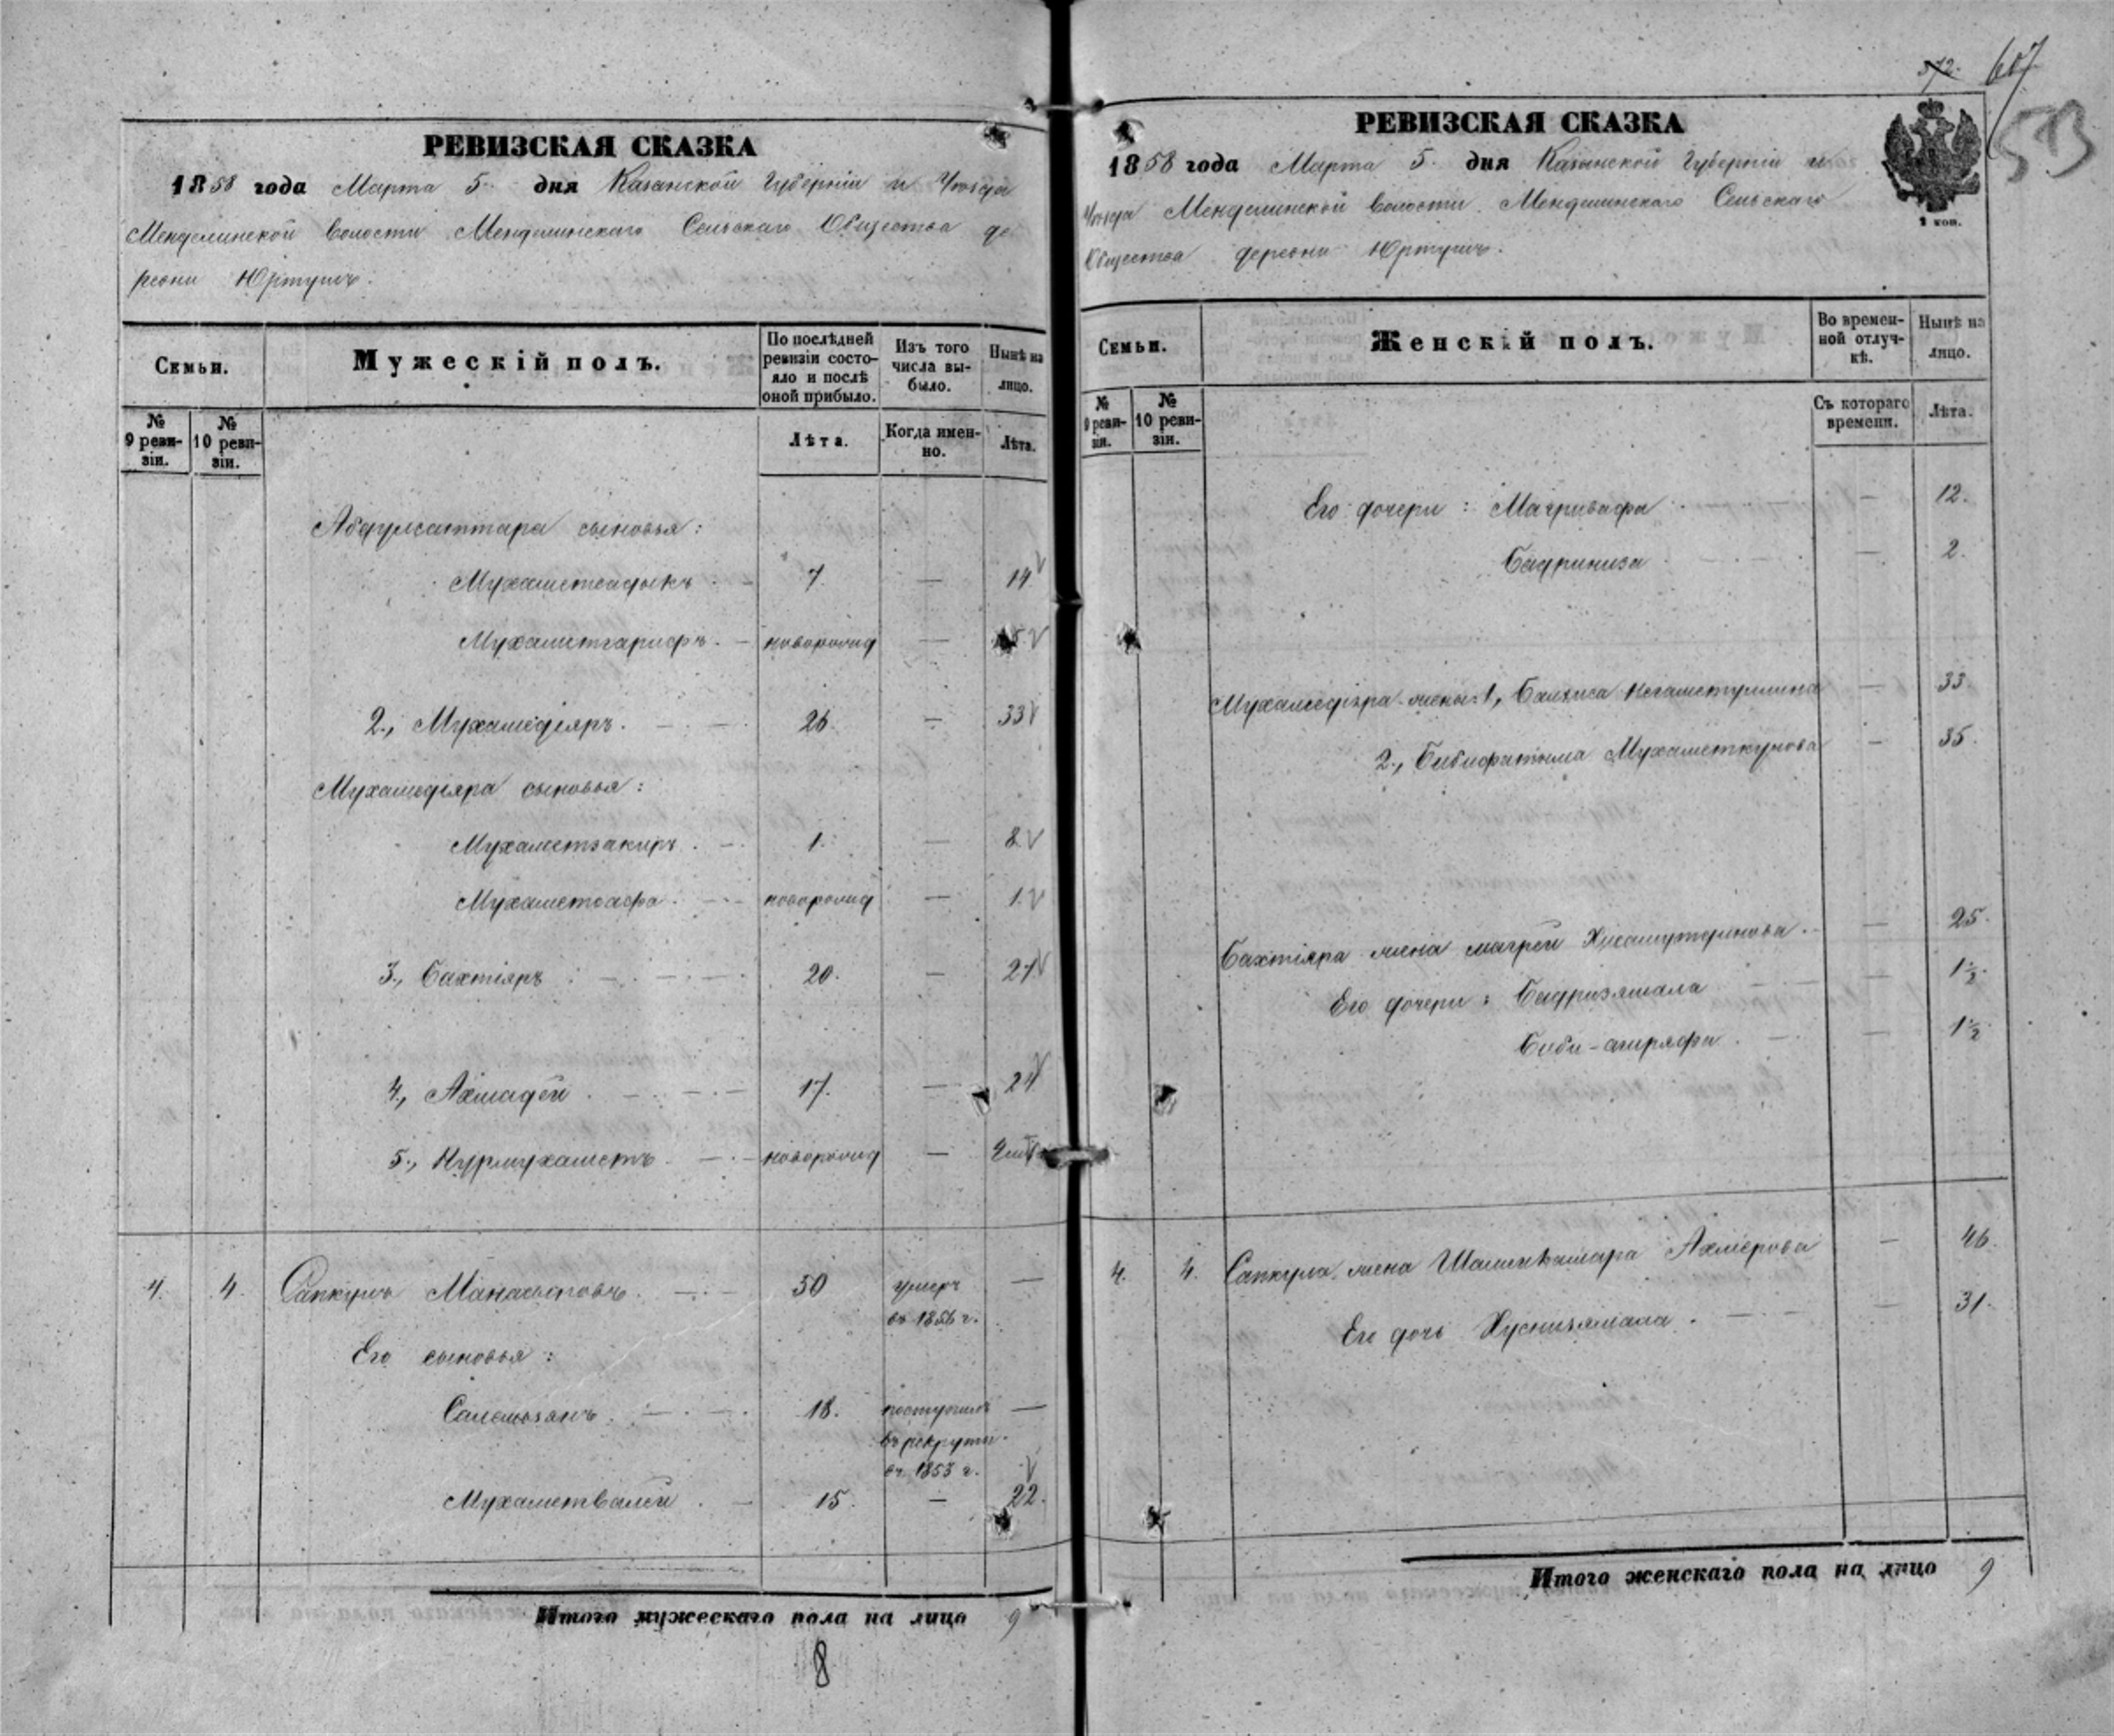 РЕВИЗСКАЯ СКАЗКА
1858 года Марта 5. дня Казанской Губернии и Уѣзда
Менделинской Волости Менделинскаго Сельскаго Общества де
ревни Юртушъ.
Семьи.
Мужескій полъ.
По послѣдней ревизіи состояло и послѣ оной прибыло.
Изъ того числа выбыло.
Нынѣ на лицо.
№ 9 ревизіи.
№ 10 ревизіи.
Лѣта.
Когда именно.
Лѣта.
Абдулсаттара сыновья:
Мухаметсадыкъ 7. — 14
Мухаметгарифъ новорожд —
2., Мухамедіяръ. 26. — 33
Мухамедіяра сыновья:
Мухаметзакиръ 1. — 8.
Мухаметсафа новорожд — 1.
3., Бахтіяръ 20. — 27
4., Ахмадей 17. — 24
5., Нурмухаметъ новорожд —
4. 4. Сапкулъ 50 умеръ —
въ 1856 г.
Его сыновья:
18. поступилъ —
въ рекруты
въ 1853 г.
Мухаметвалей 15. — 22.
Итого мужескаго пола на лицо 9
8
572. 607
573
РЕВИЗСКАЯ СКАЗКА
1858 года Марта 5. дня Казанской Губерніи и
Уѣзда Менделинской Волости Менделинскаго Сельскаго
Общества деревни Юртушъ.
2 коп.
Семьи.
Женскій полъ.
Во временной отлучкѣ.
Нынѣ на лицо.
№ 9 ревизіи.
№ 10 ревизіи.
Съ котораго времени.
Лѣта.
Его дочери: Магривафа — 12.
Бадриниса — 2.
Мухамедіяра жены: 1, Балхиса — 33.
2., Бибифатыма Мухаметкулова — 35.
Бахтіяра жена Магрей Хисамутдинова — 25.
Его дочери: Бадризямала — 1½.
Биби-ашряфа — 1½
4. 4. Сапкула жена Ахмерова — 46.
Его дочь Хуснизямала — 31.
Итого женскаго пола на лицо 9